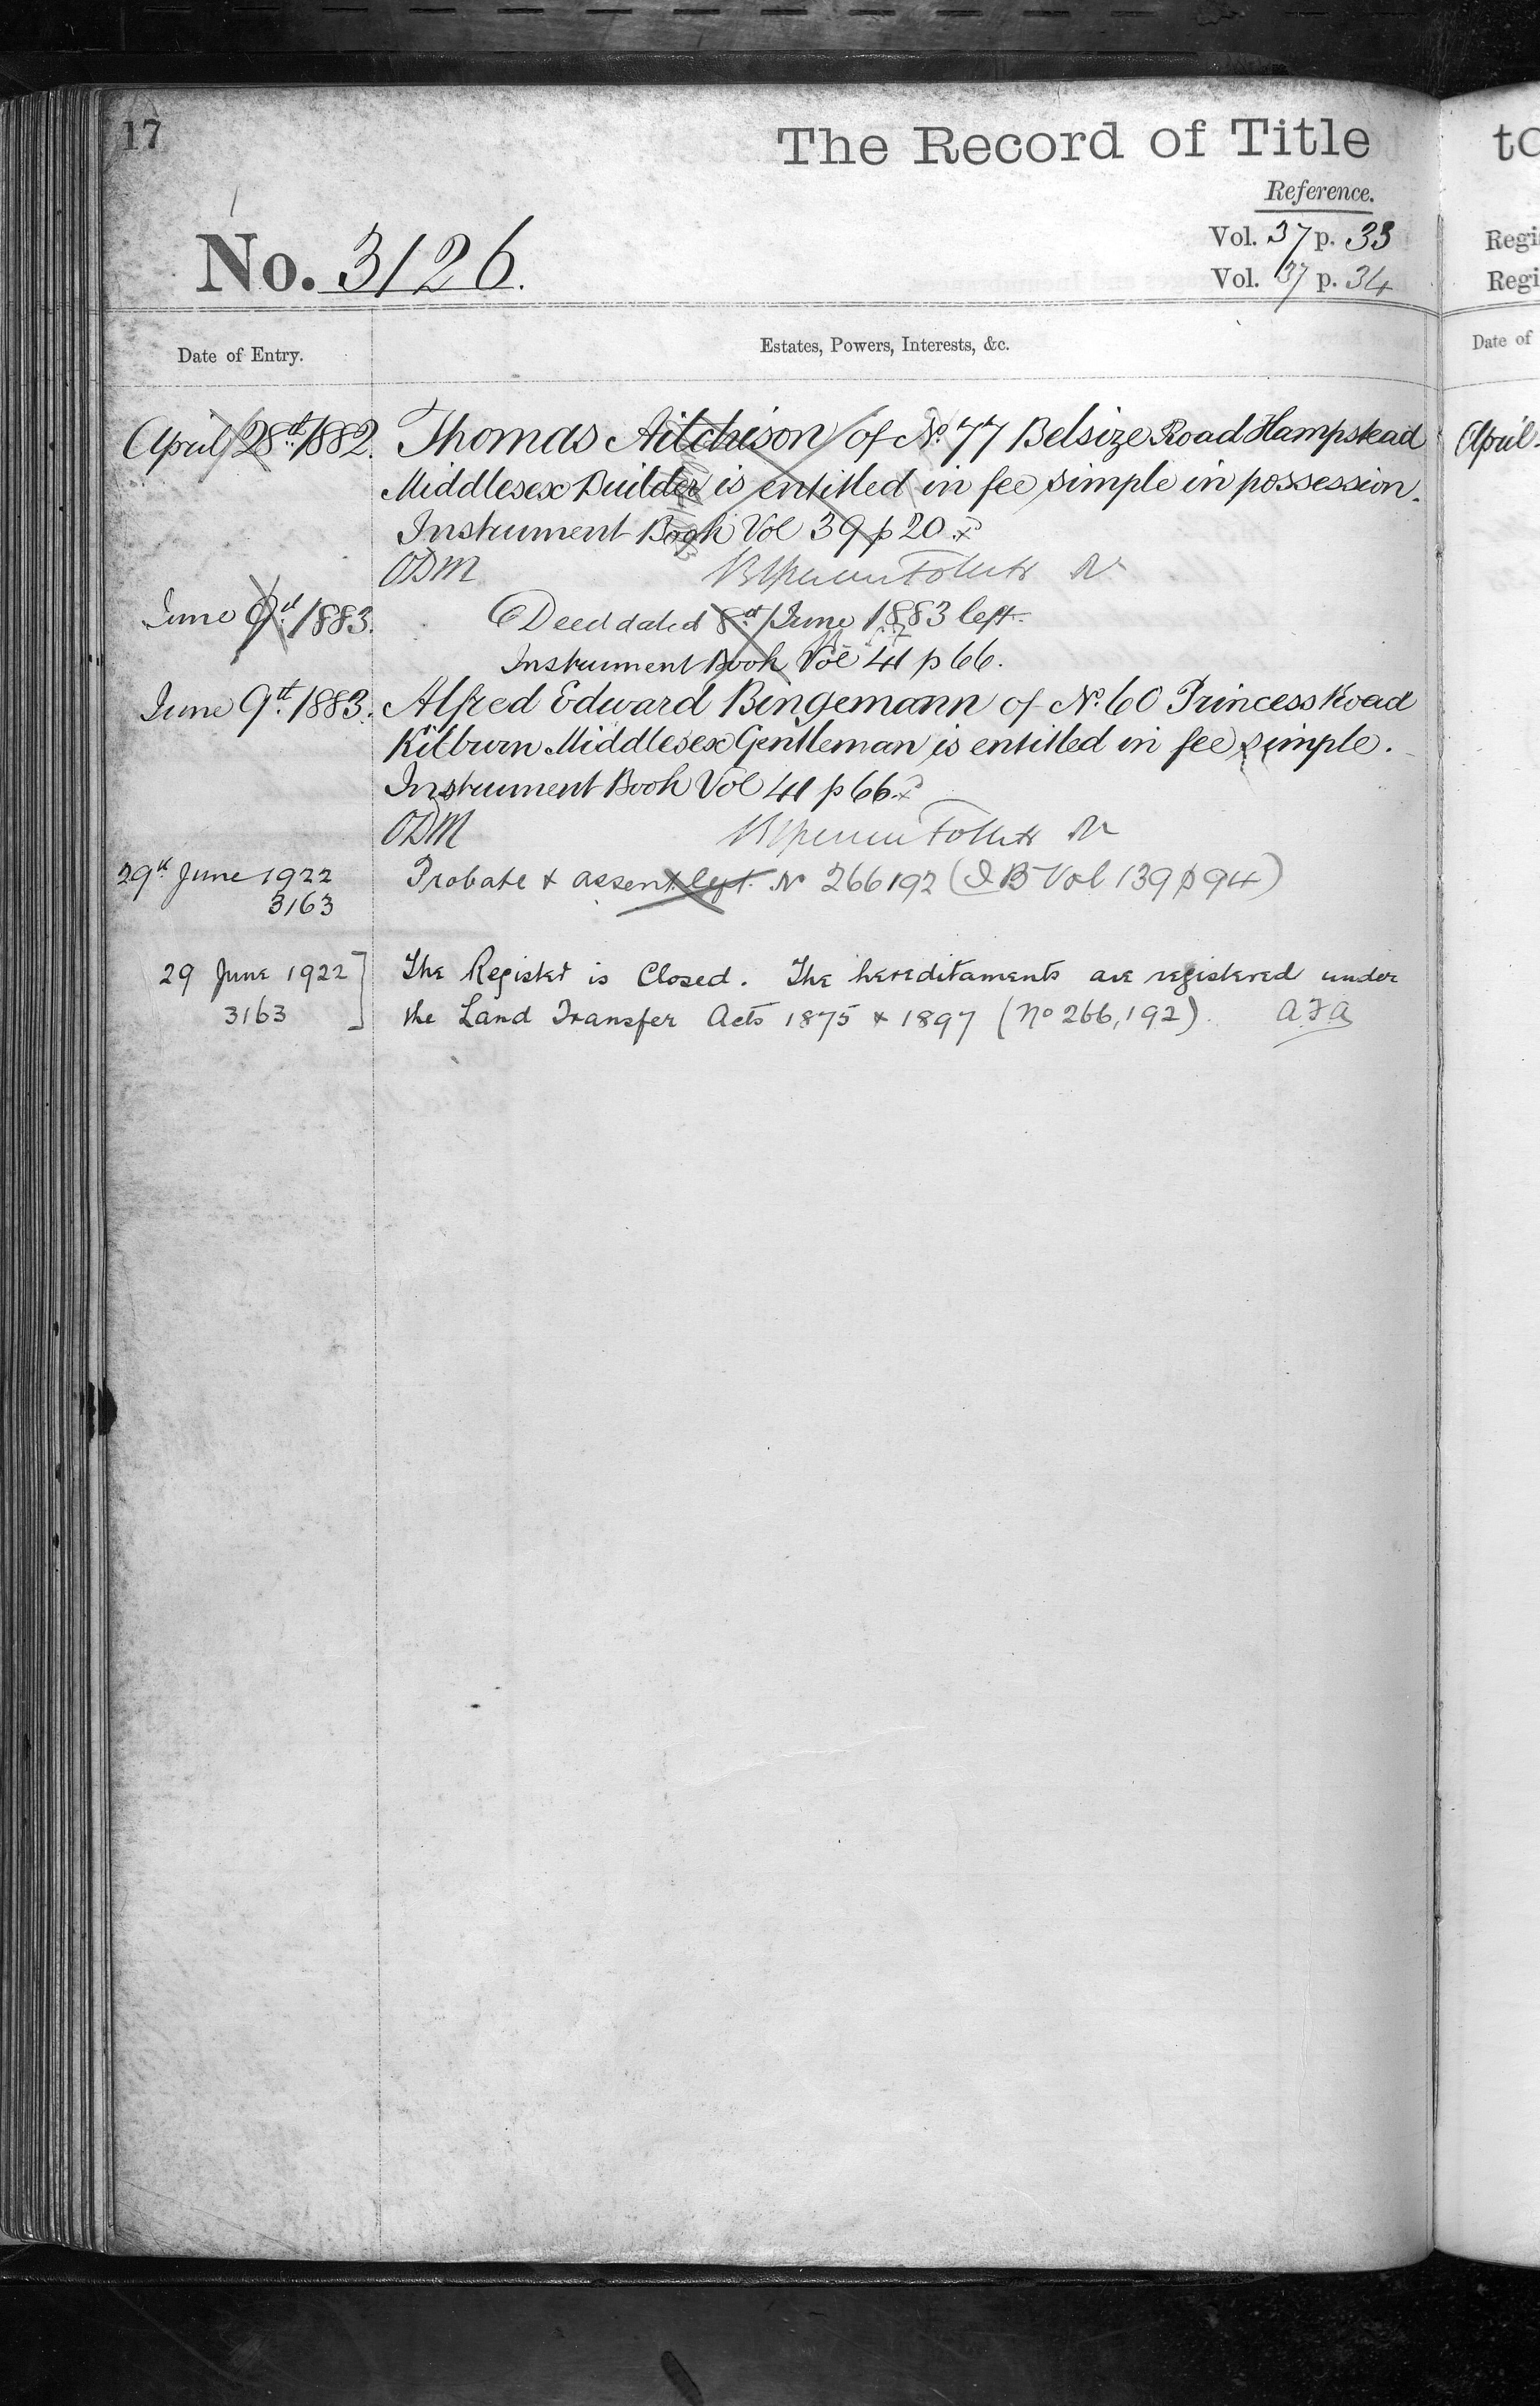 17
The Record of Title
Reference.
No. 3126.
Vol. 37 p. 33
Vol. 37 p. 34
Date of Entry.
Estates, Powers, Interests, &c.
April 28th 1882. Thomas Aitchison of No. 77 Belsize Road Hampstead
Middlesex Builder is entitled in fee simple in possession.
Instrument Book Vol 39 p 20.
ODM
June 9th 1883. Deed dated 8th June 1883 left.
Instrument Book Vol 41 p 66.
June 9th 1883. Alfred Edward Bingemann of No. 60 Princess Road
Kilburn Middlesex Gentleman is entitled in fee simple.
Instrument Book Vol 41 p 66.
ODM
29th June 1922 Probate & assent left. No 266192 (I B Vol 139 p 94)
3163
29 June 1922 The Register is Closed. The hereditaments are registered under
3163 the Land Transfer Acts 1875 & 1897 (No 266,192). A.F.A
to
Regi
Regi
Date of
April